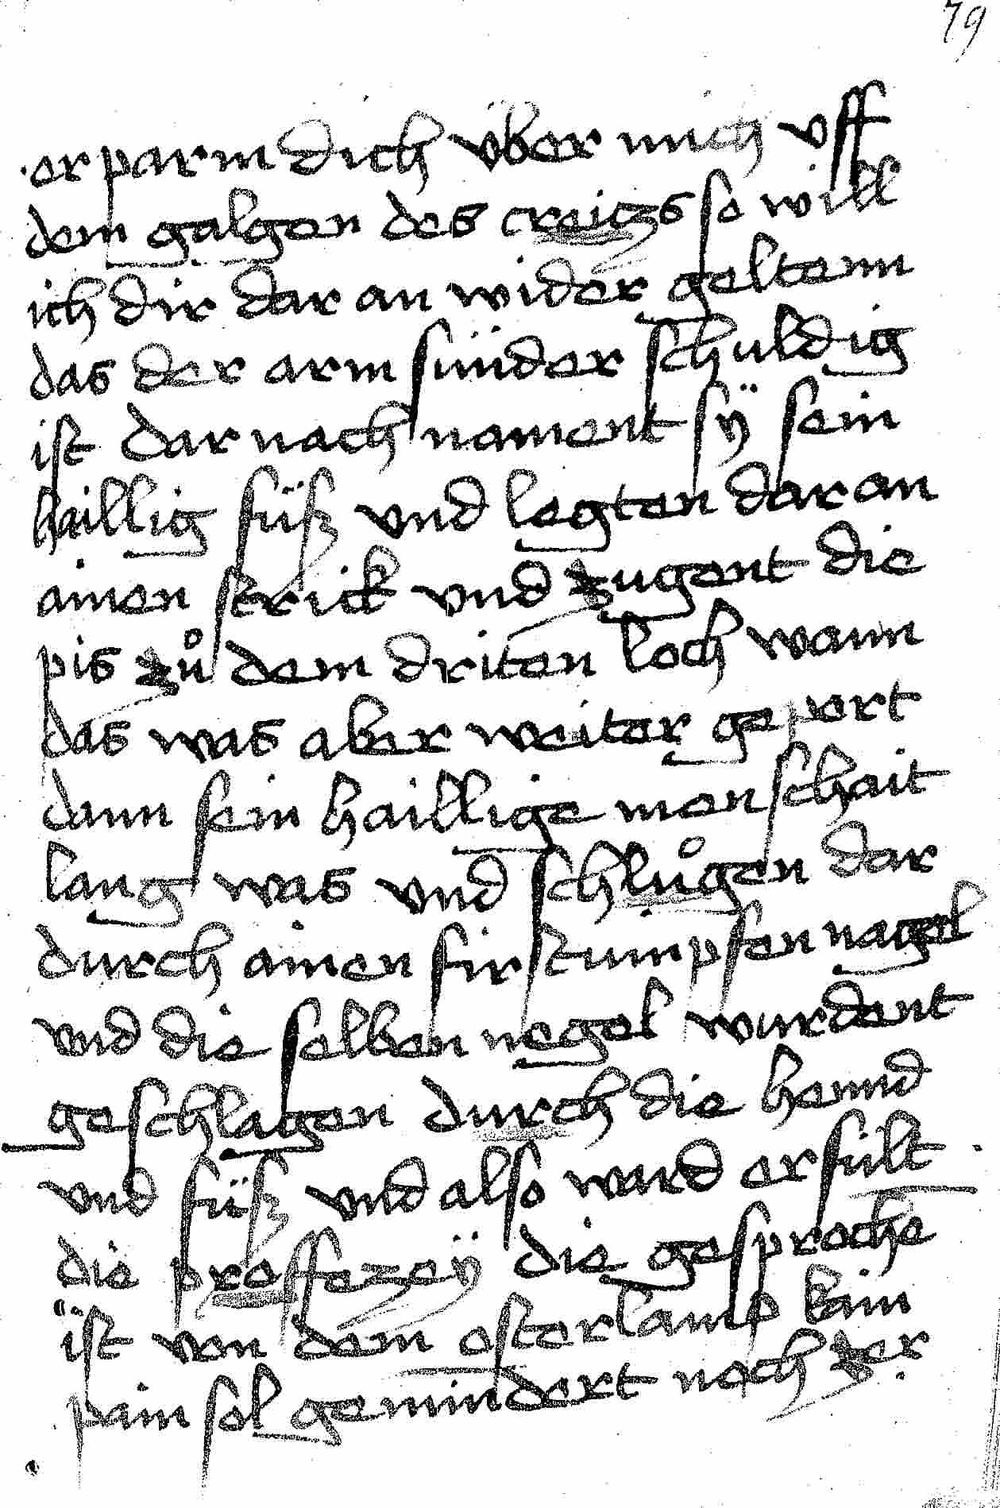 79
erparm dich über mich vff
dem galgen des creiczs so will
ich dir dar an wider geltenn
das der arm sünder schuldig
ist dar nach nament sÿ sein
haillig füß vnd legten dar an
ainen strick vnd zugent die
pis zů dem driten loch wann
das was aber weiter gepert
dann sein haillige menschait
lang was vnd schlůgen dar
durch ainen fir stumpfen nagel
vnd die selben negel wurdent
geschlagen durch die hennd
vnd füß vnd also ward erfült
die proffezeÿ die gesproche
ist von dem osterlamp kain
pain sol gemindert noch zer